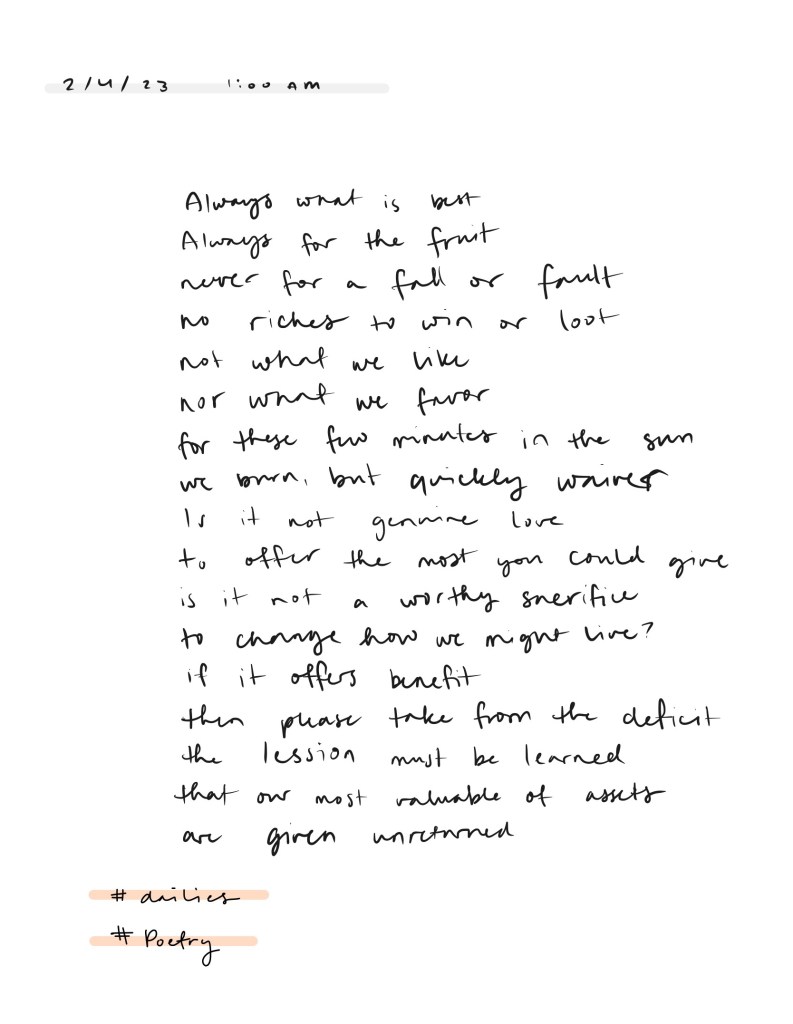 2/4/23 1:00 AM
Always what is best
Always for the fruit
never for a fall or fault
no riches to win or loot
not what we like
nor what we favor
for these few minutes in the sun
we burn, but quickly waiver
Is it not genuine love
to offer the most you could give
is it not a worthy sacrifice
to change how we might live?
if it offers benefit
then please take from the deficit
the lession must be learned
that our most valuable of assets
are given unreturned
# dailies
# Poetry